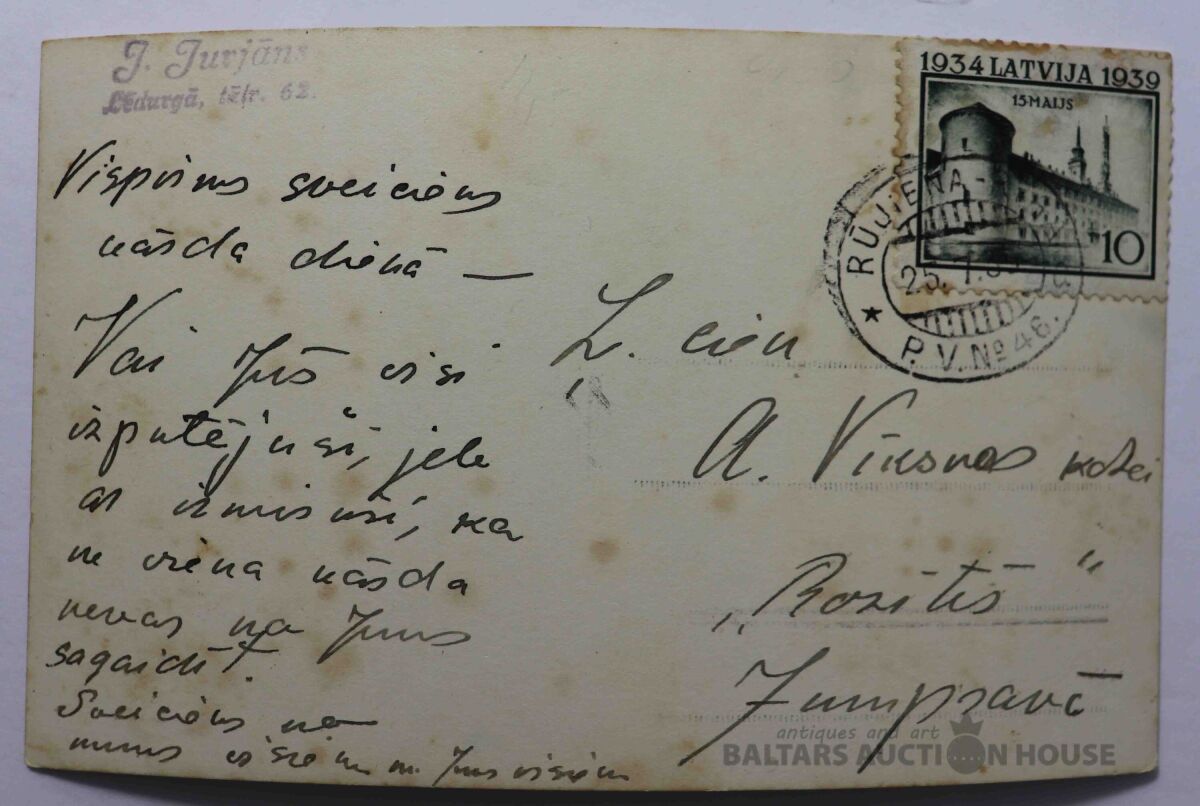 J. Jurjāns
Lēdurgā, tēļr. 62.
Vispirms sveiciens
vārda dienā —
Vai Jūs visi
izputējuši, jele
ar izmisuši, ka
ne viena vārda
nevar no Jums
sagaidīt.
Sveiciens no
mums visiem Jums visiem
1934 LATVIJA 1939
15·MAIJS
10
RŪJIENA
25. 7. 39
★ P.V. No 46.
L. cien
A. Vīksnas kdzei
„Rozītēs“
Jumpravā
antiques and art
BALTARS AUCTION HOUSE